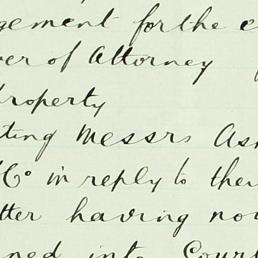 gement for the e
ver of Attorney
property
ting Messrs As
& Co in reply to the
tter having no
ned into Cour